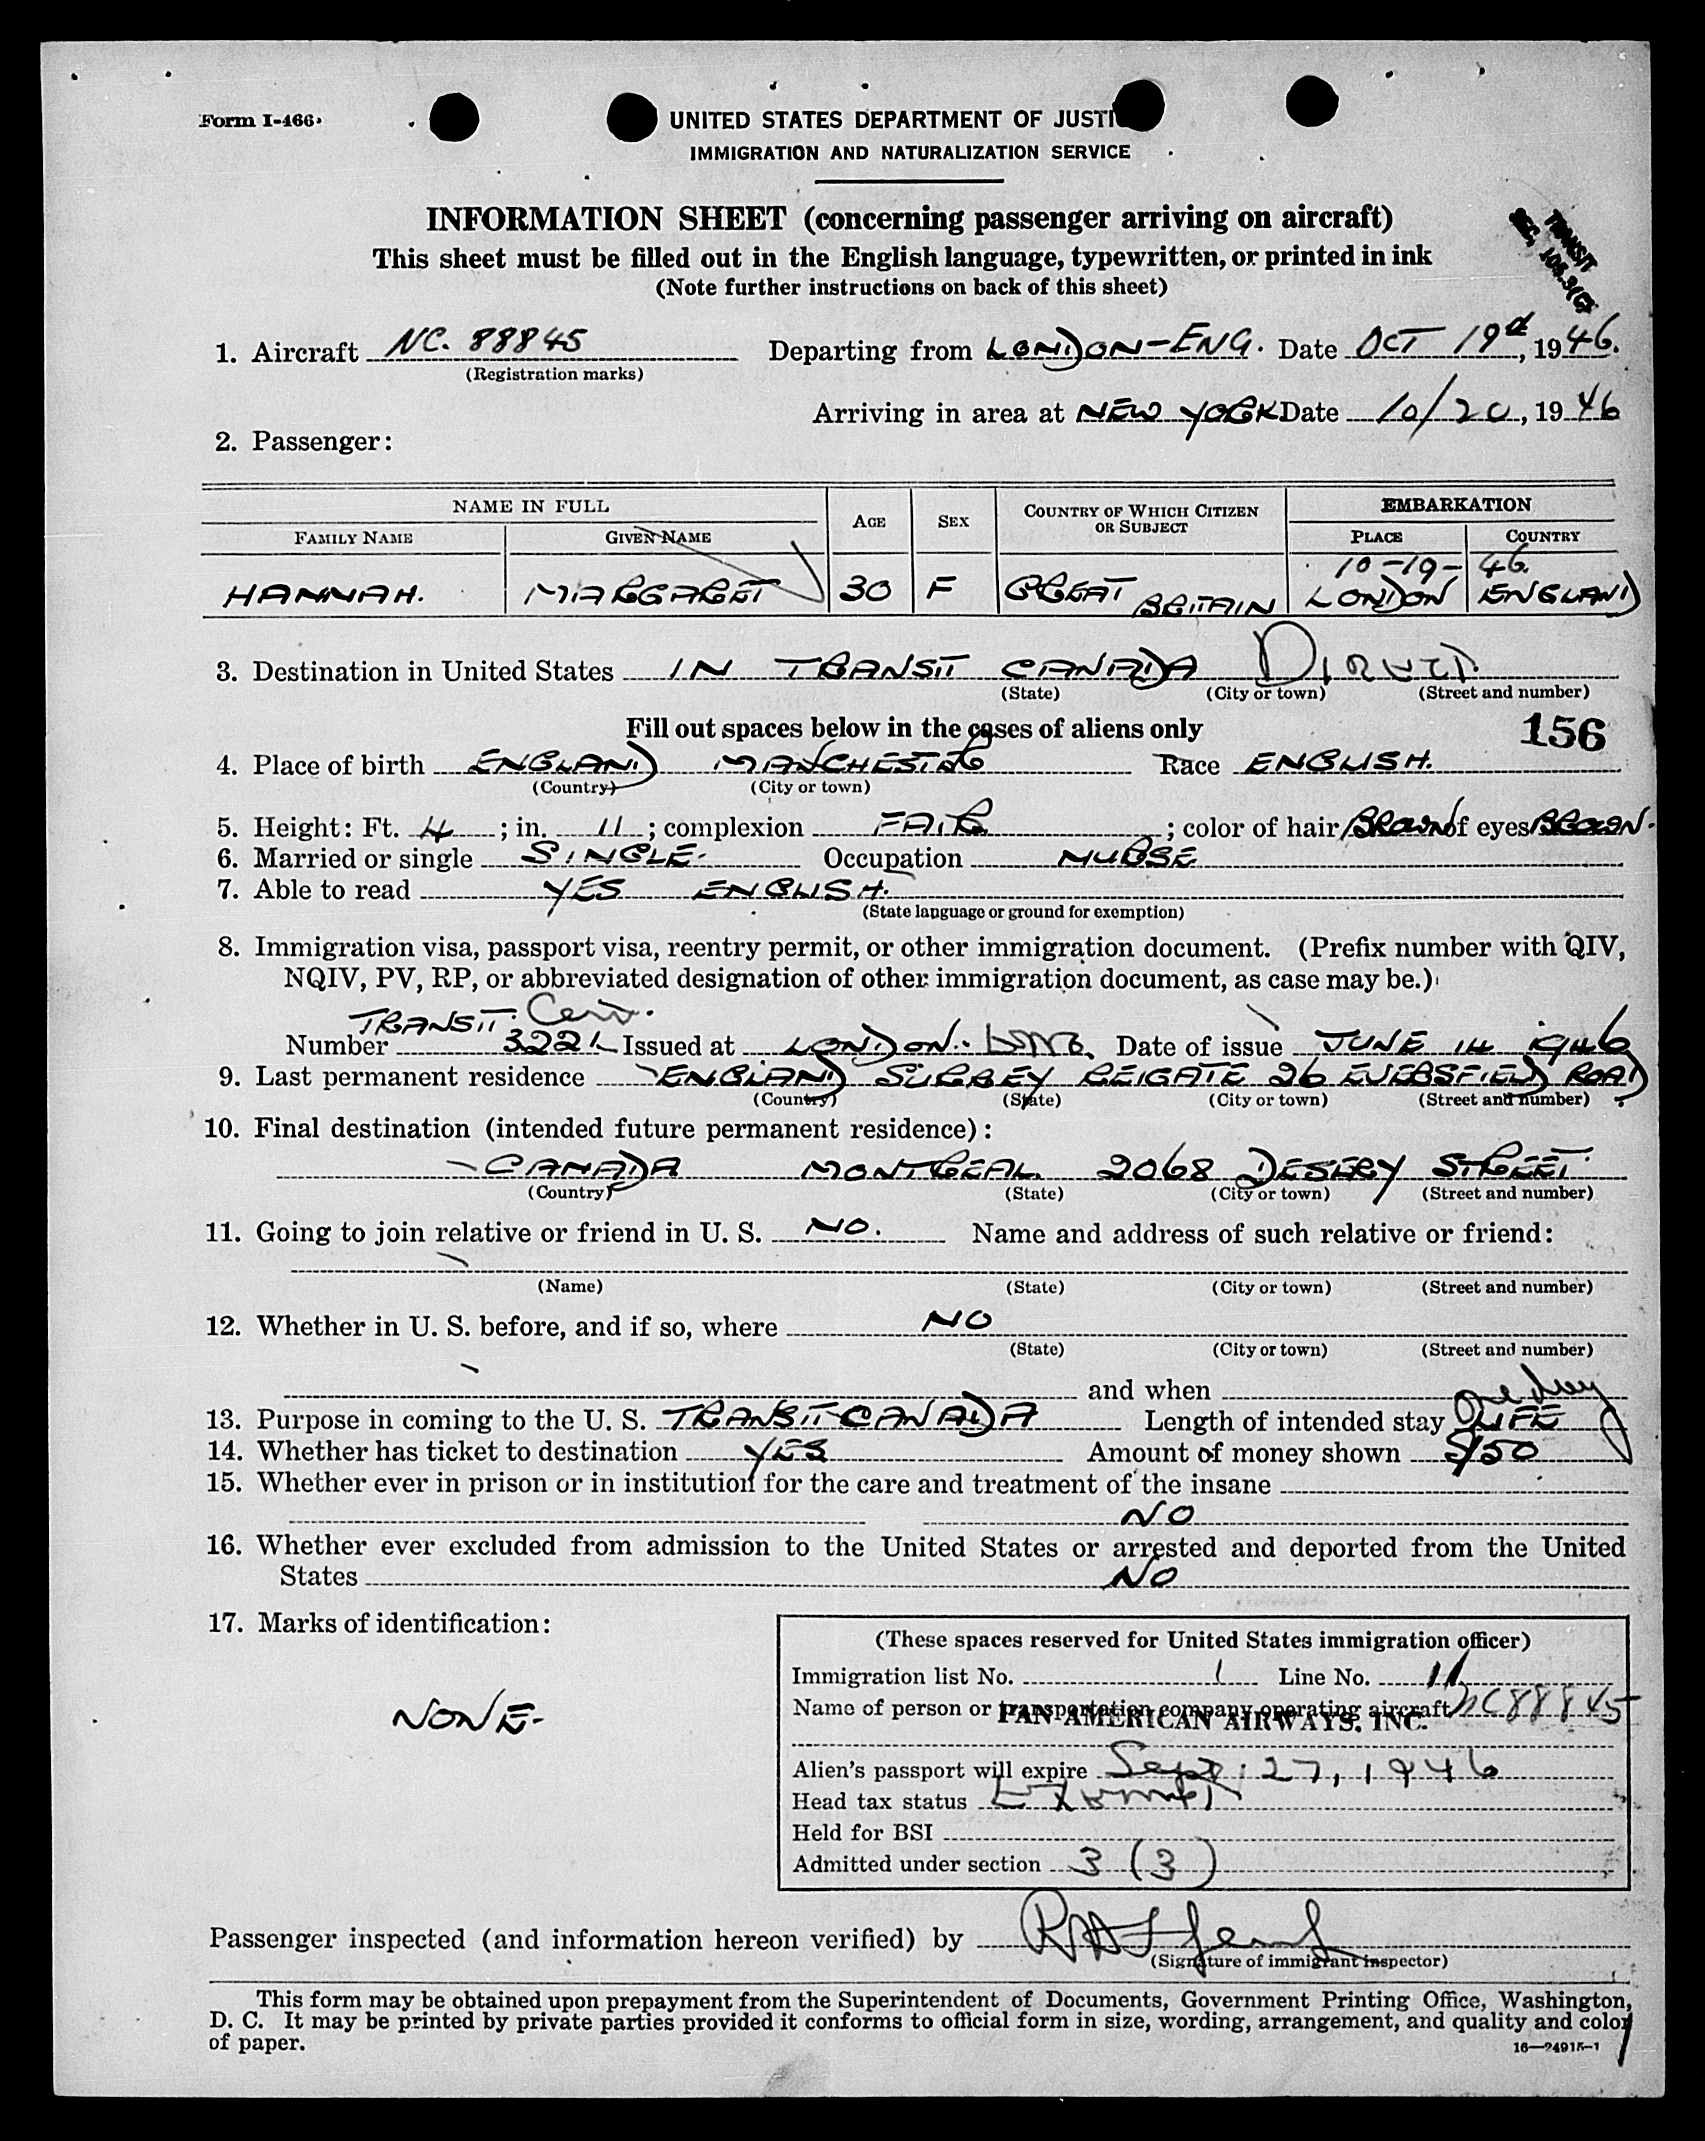 Form I-466
UNITED STATES DEPARTMENT OF JUSTI
IMMIGRATION AND NATURALIZATION SERVICE
INFORMATION SHEET (concerning passenger arriving on aircraft)
This sheet must be filled out in the English language, typewritten, or printed in ink
(Note further instructions on back of this sheet)
TRANSIT
SEC.
1. Aircraft NC. 88845 Departing from LONDON-ENG. Date OCT 19d, 1946.
(Registration marks)
Arriving in area at NEW YORK Date 10/20, 1946
2. Passenger:
NAME IN FULL AGE SEX COUNTRY OF WHICH CITIZEN OR SUBJECT EMBARKATION
FAMILY NAME GIVEN NAME PLACE COUNTRY
10-19-46.
HANNAH. MARGARET 30 F GREAT BRITAIN LONDON ENGLAND
3. Destination in United States IN TRANSIT CANADA Direct.
(State) (City or town) (Street and number)
Fill out spaces below in the cases of aliens only 156
4. Place of birth ENGLAND MANCHESTER Race ENGLISH.
(Country) (City or town)
5. Height: Ft. 4; in. 11; complexion FAIR; color of hair BROWN of eyes BROWN.
6. Married or single SINGLE. Occupation NURSE
7. Able to read YES ENGLISH.
(State language or ground for exemption)
8. Immigration visa, passport visa, reentry permit, or other immigration document. (Prefix number with QIV,
NQIV, PV, RP, or abbreviated designation of other immigration document, as case may be.)
TRANSIT. Cert.
Number 3221 Issued at LONDON. Date of issue JUNE 14 1946
9. Last permanent residence ENGLAND SURREY REIGATE 26 EVERSFIELD ROAD
(Country) (State) (City or town) (Street and number)
10. Final destination (intended future permanent residence):
CANADA MONTREAL 2068 DESERY STREET.
(Country) (State) (City or town) (Street and number)
11. Going to join relative or friend in U. S. NO. Name and address of such relative or friend:
(Name) (State) (City or town) (Street and number)
12. Whether in U. S. before, and if so, where NO
(State) (City or town) (Street and number)
and when
One day
13. Purpose in coming to the U. S. TRANSIT CANADA Length of intended stay LIFE
14. Whether has ticket to destination YES Amount of money shown $150
15. Whether ever in prison or in institution for the care and treatment of the insane
NO
16. Whether ever excluded from admission to the United States or arrested and deported from the United
States NO
17. Marks of identification:
NONE-
(These spaces reserved for United States immigration officer)
Immigration list No. 1 Line No. 11
Name of person or transportation company operating aircraft NC88845
PAN AMERICAN AIRWAYS, INC.
Alien's passport will expire Sept. 27, 1946
Head tax status Exempt
Held for BSI
Admitted under section 3 (3)
Passenger inspected (and information hereon verified) by
(Signature of immigrant inspector)
This form may be obtained upon prepayment from the Superintendent of Documents, Government Printing Office, Washington,
D. C. It may be printed by private parties provided it conforms to official form in size, wording, arrangement, and quality and color
of paper.
16—24915-1